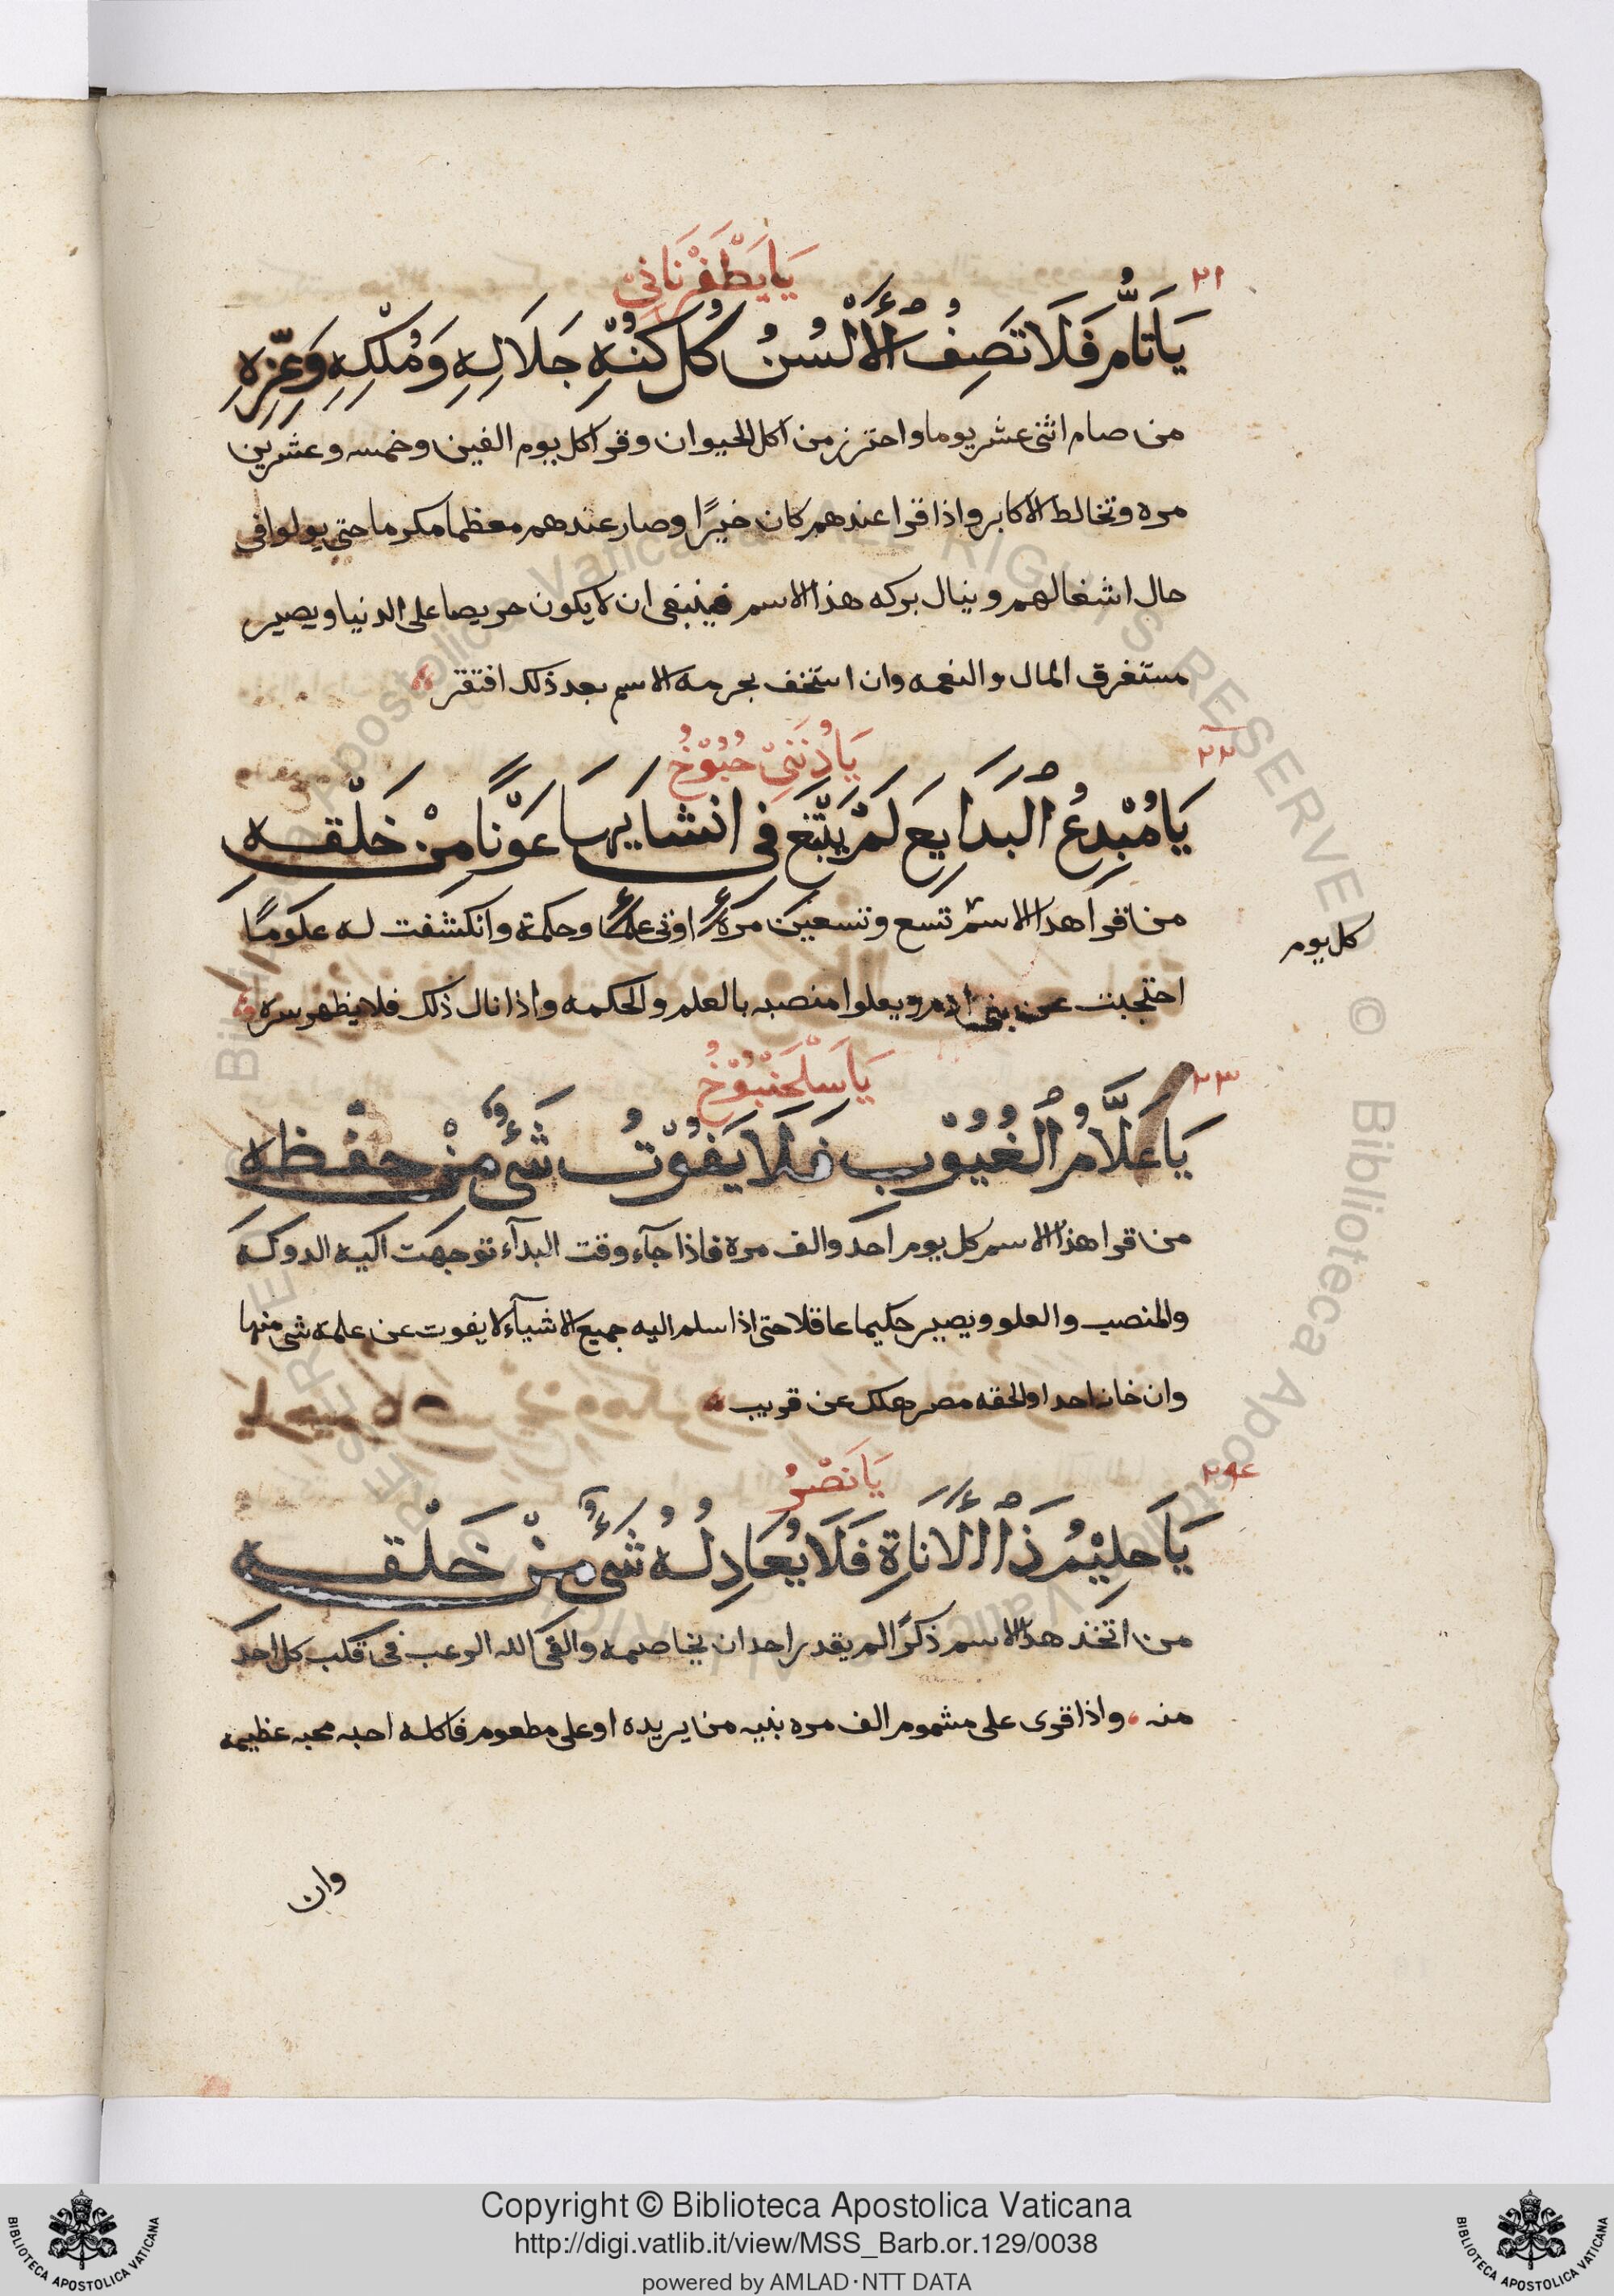 يَا يَطَّفَرْنَانِيّ
٢١
يَا تَآمُّ فَلَا تَصِفُ ٱلْأَلْسُنُ كُل كُنْهِ جَلَالِهِ وَمُلْكِهِ وَعِزِّهِ
من صام اثنى عشر يوما واحترز من اكل الحيوان وقرا كل يوم الفين وخمسه وعشرين
مره وتخالط الاكابر واذا قرا عندهم كان خيرًا وصار عندهم معظما مكرما حتى يولوا فى
حال اشغالهم وينال بركه هذا الاسم فينبغى ان لا يكون حريصا على الدنيا ويصير
مستغرق المال والنعمه وان استخف بحرمه الاسم بعد ذلك افتقر
٢٢
يَا مُبْدِعُ ٱلْبَدَايِعَ لَمْ يَبْتَغِ فى انشايِهَا عَوْنًا مِنْ خَلْقِهِ
من قرا هدا الاسم تسع وتسعين مرة اوتى علما وحكمة وانكشفت له علوما
كل يوم
احتجبت عن بنى ادم ويعلوا منصبه بالعلم والحكمه واذا نال ذلك فلا يظهر سره
٢٣
يَا عَلَّامُ ٱلْغُيُوْبِ فَلَا يَفُوْتُ شَىْءٌ مِنْ حِفْظِهِ
من قرا هذا الاسم كل يوم احد والف مرة فاذا جآء وقت البدآء توجهت اليه الدوله
والمنصب والعلو ويصير حكيما عاقلا حتى اذا سلم اليه جميع الاشيآء لا يفوت عن علمه شى منها
وان خان احد اولحقه مصر هلك عن قريب
يَا نَصْرُ
٢٤
يَا حَلِيْمُ ذَا ٱلْأَنَاةِ فَلَا يُعَادِلُهُ شَىْءٌ مِنْ خَلْقِهِ
من اتخذ هدا الاسم ذكرًا لم يقدر احد ان يخاصمه والقى الله الرعب فى قلب كل احد
منه واذا قرى على مشموم الف مره بنيه من يريده او على مطعوم فاكله احبه محبه عظيمه
وان
Copyright © Biblioteca Apostolica Vaticana
http://digi.vatlib.it/view/MSS_Barb.or.129/0038
powered by AMLAD·NTT DATA
BIBLIOTECA APOSTOLICA VATICANA
BIBLIOTECA APOSTOLICA VATICANA